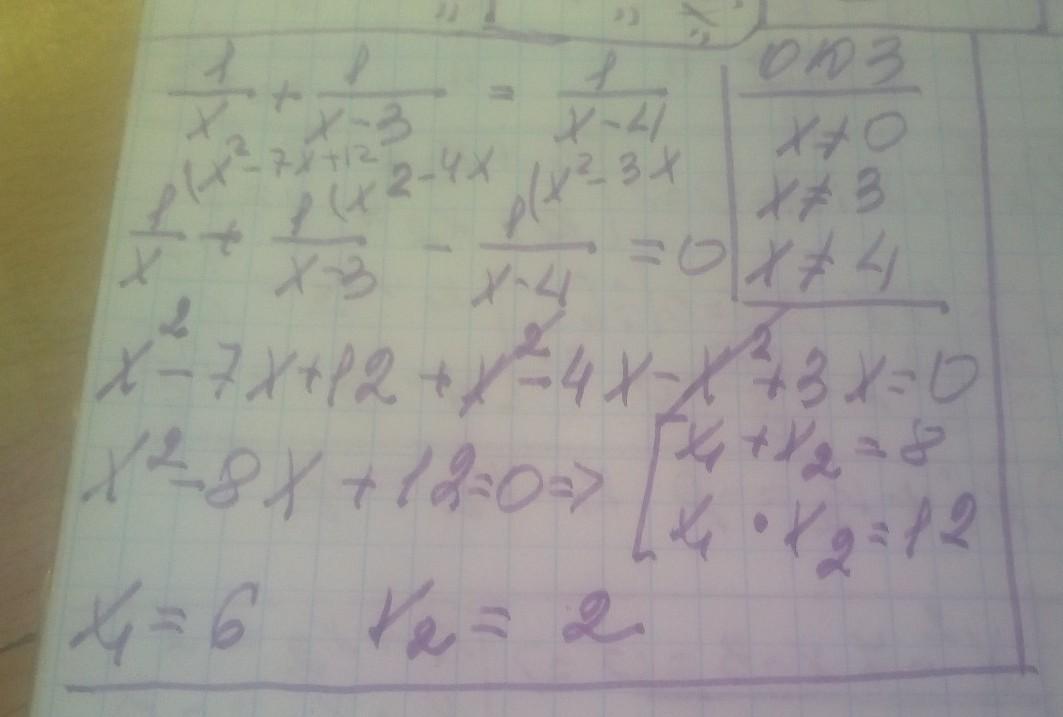 1/x + 1/(x-3) = 1/(x-4)
ОДЗ
x≠0
x≠3
x≠4
1(x²-7x+12/x + 1(x²-4x/(x-3) - 1(x²-3x/(x-4) = 0
x²-7x+12+x²-4x-x²+3x=0
x²-8x+12=0=> [x₁+x₂=8
x₁·x₂=12
x₁=6 x₂=2